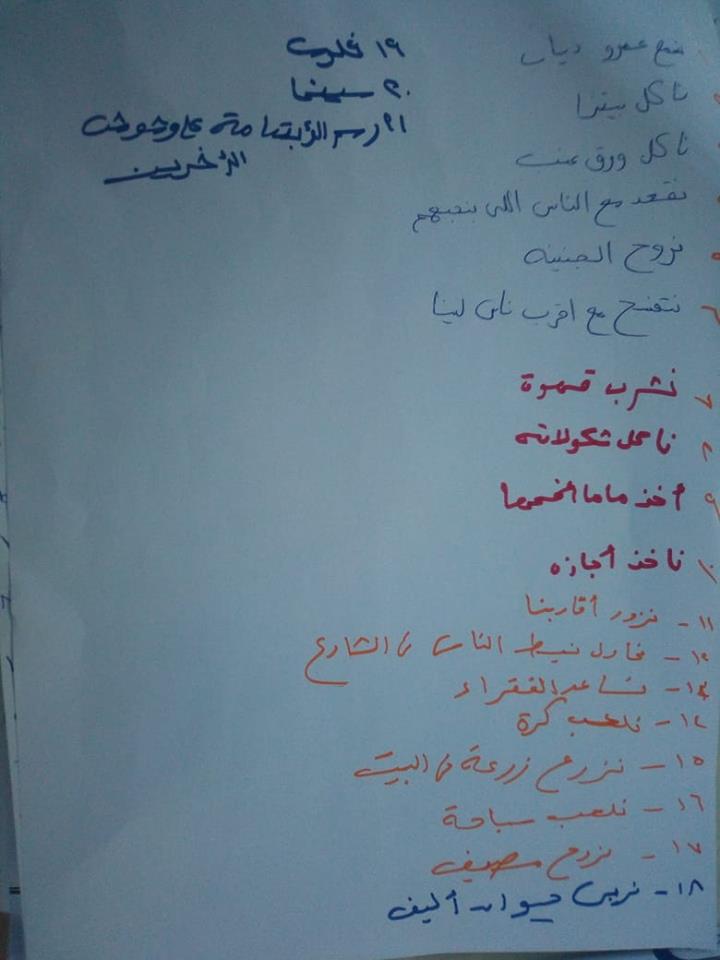 ١ نسمع عمرو دياب
٢ ناكل بيتزا
ناكل ورق عنب
نقعد مع الناس اللى بنحبهم
٥ نروح الجنينه
٦ نتفسح مع اقرب ناس لينا
٧ نشرب قهوة
٨ ناكل شكولاته
٩ أخذ ماما احضنها
١٠ ناخذ أجازه
١١- نزور أقاربنا
١٢- نحاول نبسط الناس فى الشارع
١٣- نساعد الفقراء
١٤- نلعب كرة
١٥- نزرع زرعة فى البيت
١٦- نلعب سباحة
١٧- نروح مصيف
١٨- نربى حيوان أليف
١٩
٢٠ سينما
٢١ رسم الأبتسامة على وجوه
الأخرين